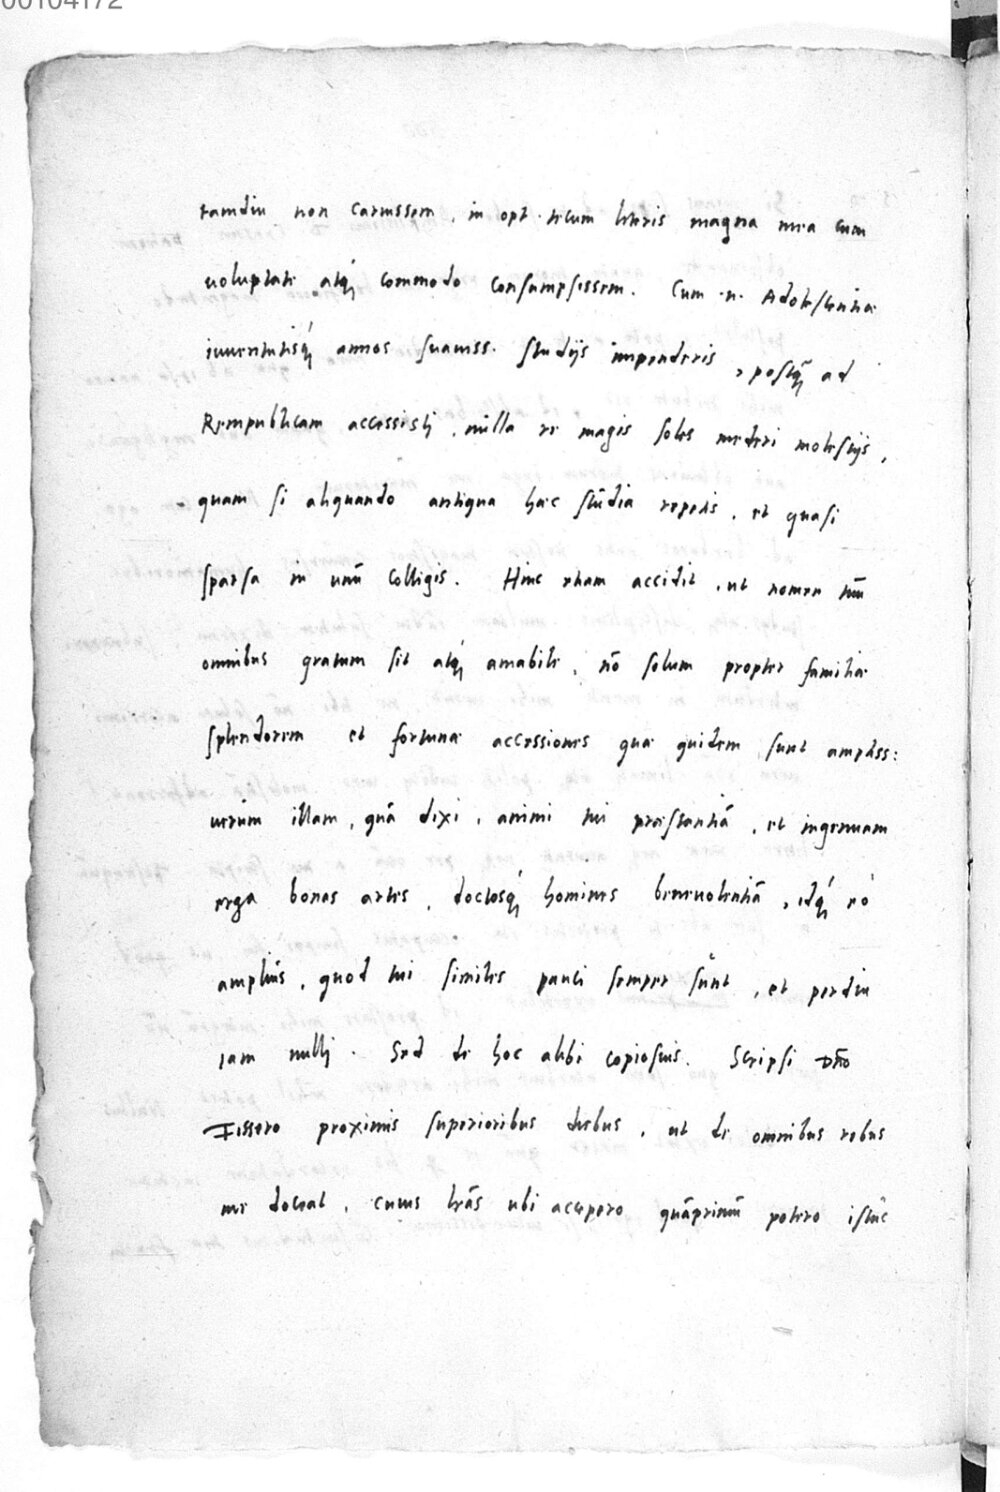 00104172
tamdiu non caruissem, in opt. tecum literis magna mea cum
uoluptate atq́ꝫ commodo consumpsissem. Cum .n. Adolescentiæ
iuuentutisq́ꝫ annos suauiss. studijs impenderis, postꝙ̃ ad
Rempublicam accessisti, nulla re magis soles mederi molestijs,
quam si aliquando antiqua hæc studia repetis, et quasi
sparsa in unũ colligis. Hinc etiam accidit, ut nomen tuũ
omnibus gratum sit atq́ꝫ amabile, nõ solum propter familiæ
splendorem et fortunæ accessiones quæ quidem sunt ampliss:
uerùm illam, quã dixi, animi tui præstantiã, et ingenuam
erga bonas artes, doctosq́ꝫ homines beneuolentiã, idq́ꝫ eò
ampliùs, quod tui similes pauci semper sunt, et perdiu
iam nulli. Sed de hoc alibi copiosius. Scripsi Dño
proximis superioribus diebus, ut de omnibus rebus
me doceat, cuius lrãs ubi accepero quãprimũ potero istuc